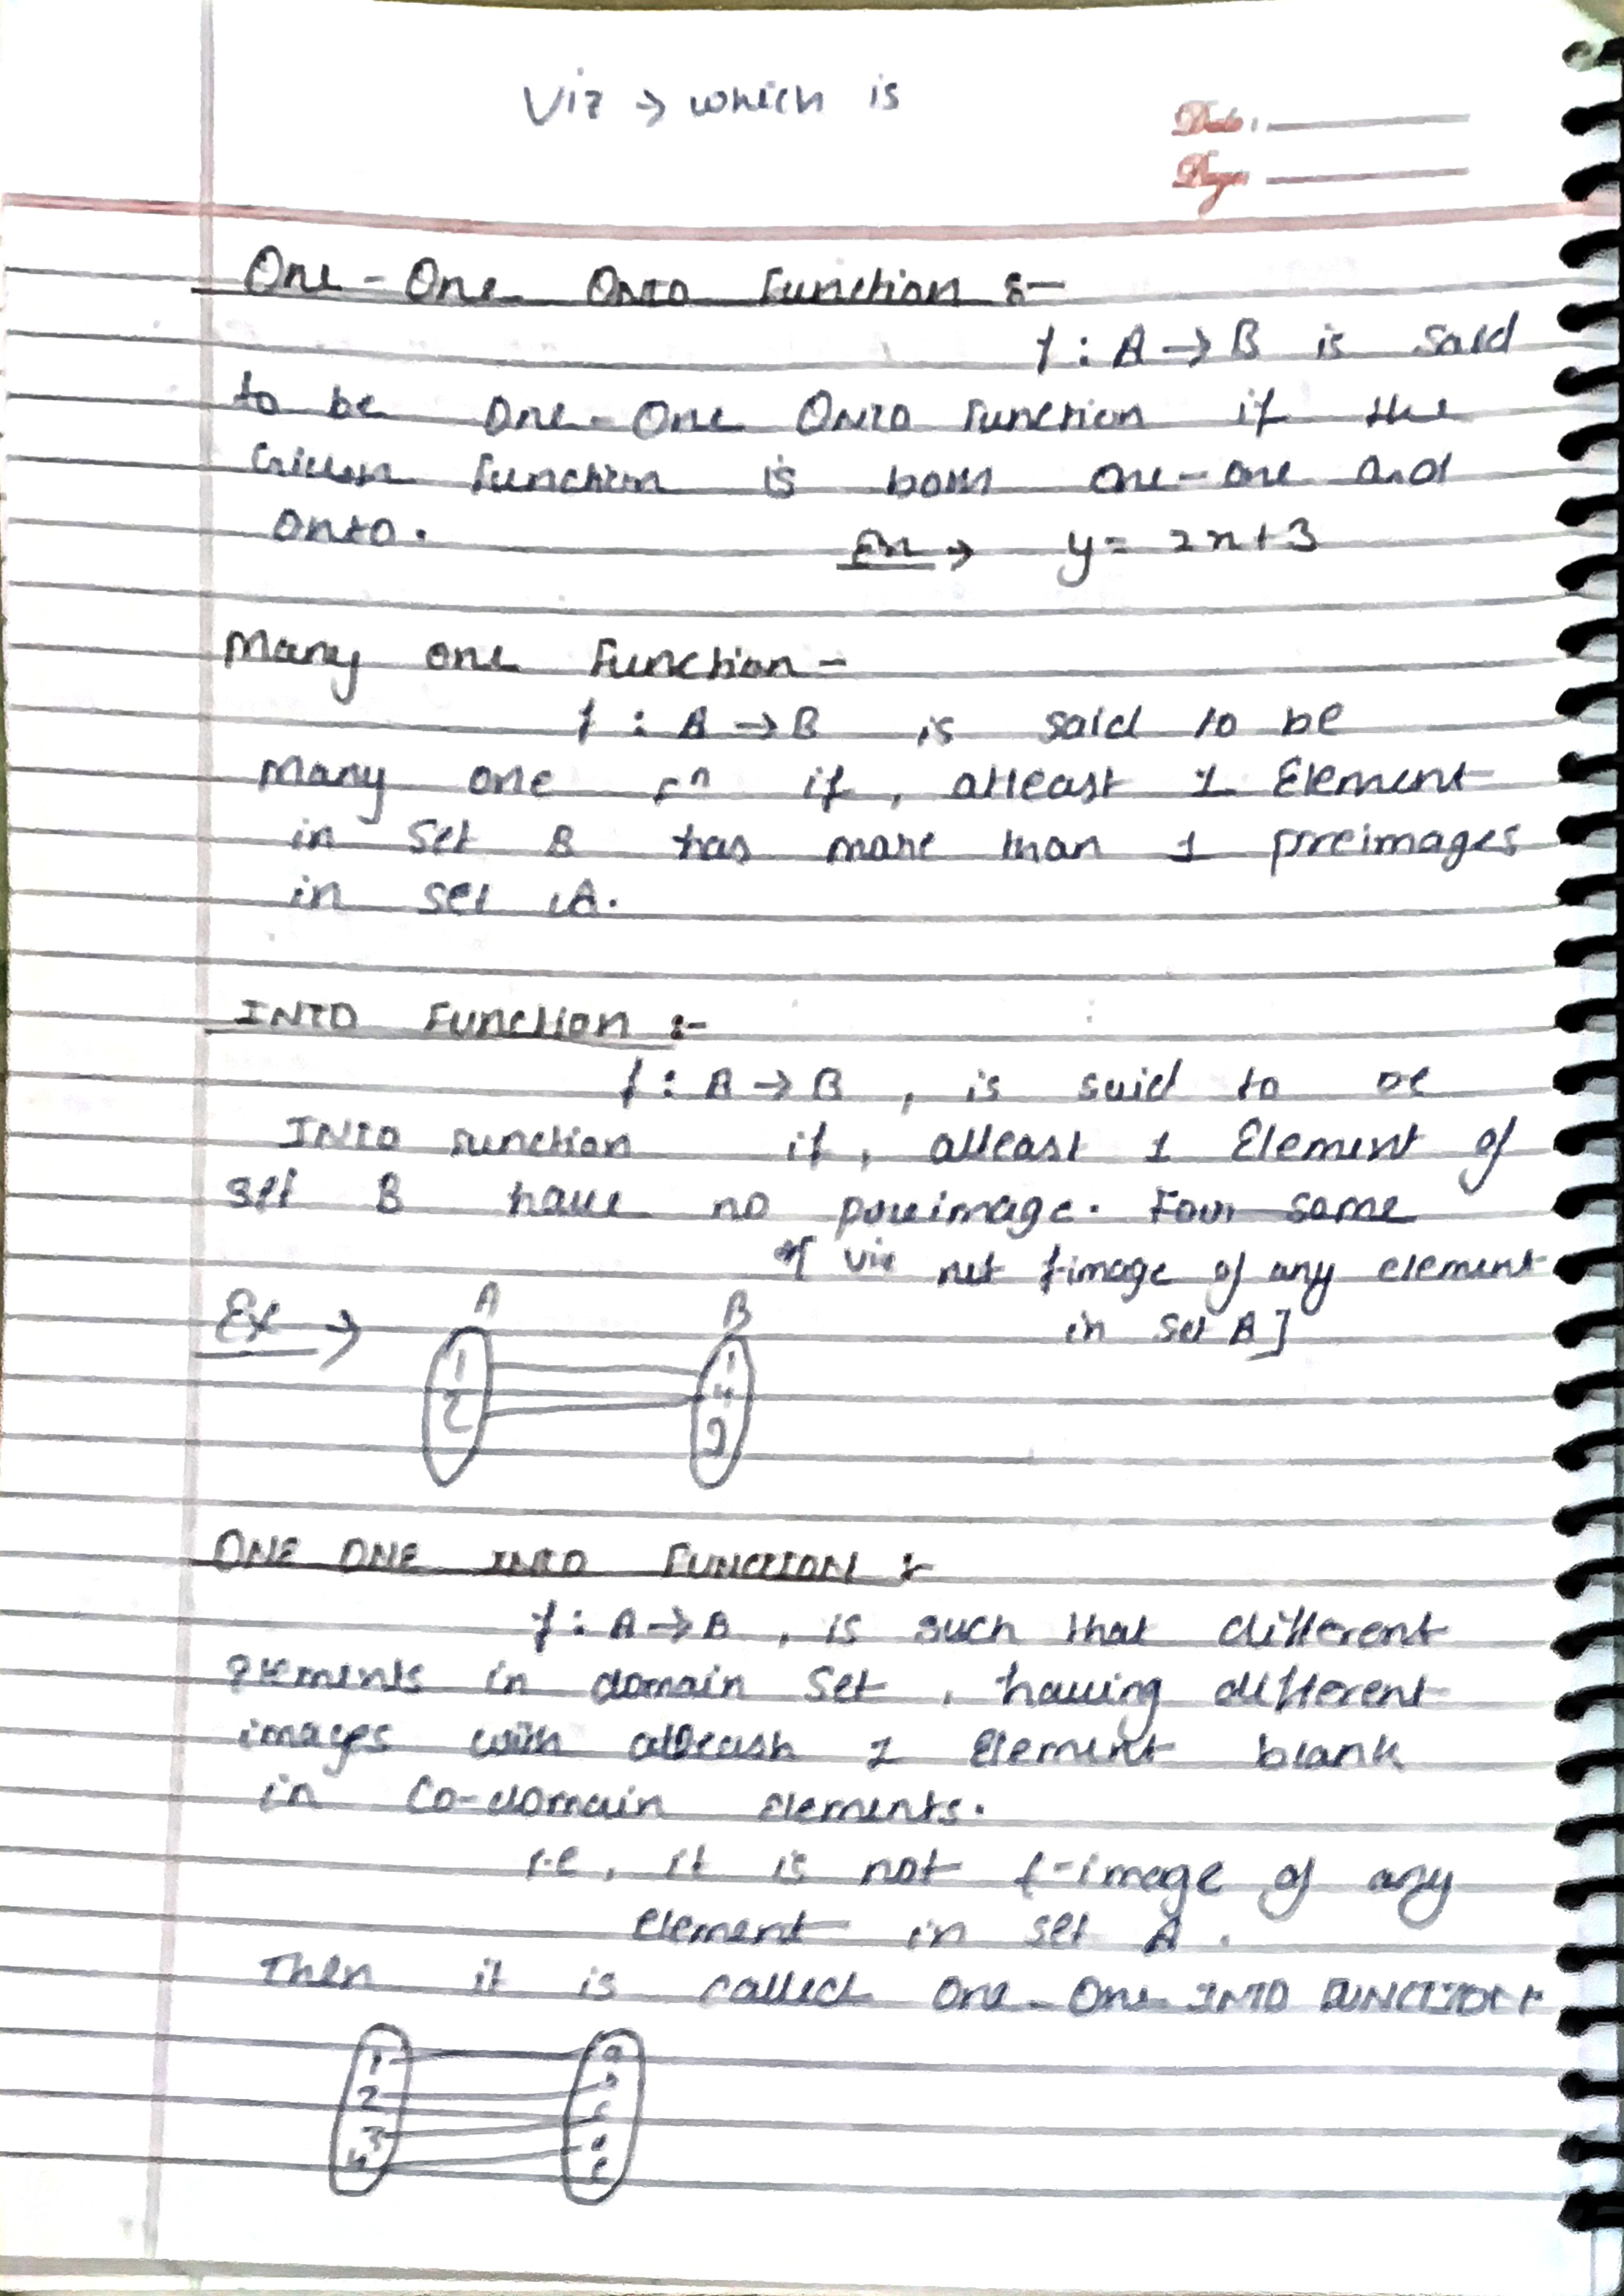 Viz → which is
Date:
Page
One-One Onto Function :-
f : A → B is said
to be One-One ONTO Function if the
Given Function is both one-one and
onto. Ex → y = 2x+3
Many one Function -
f : A → B is said to be
Many one fⁿ if, atleast 1 Element
in Set B has more than 1 preimages
in set A.
INTO Function :-
f : A → B , is said to be
INTO Function if, atleast 1 Element of
set B have no preimage. For some
viz not f-image of any element
in set A]
Ex → A B
1 1
2 4
9
ONE ONE INTO FUNCTION :-
f : A → B , is such that different
elements in domain Set , having different
images with atleast 1 Element blank
in Co-domain elements.
i.e, it is not f-image of any
element in set A.
Then it is called One-One INTO FUNCTION
1 a
2 b
3 c
4 d
e